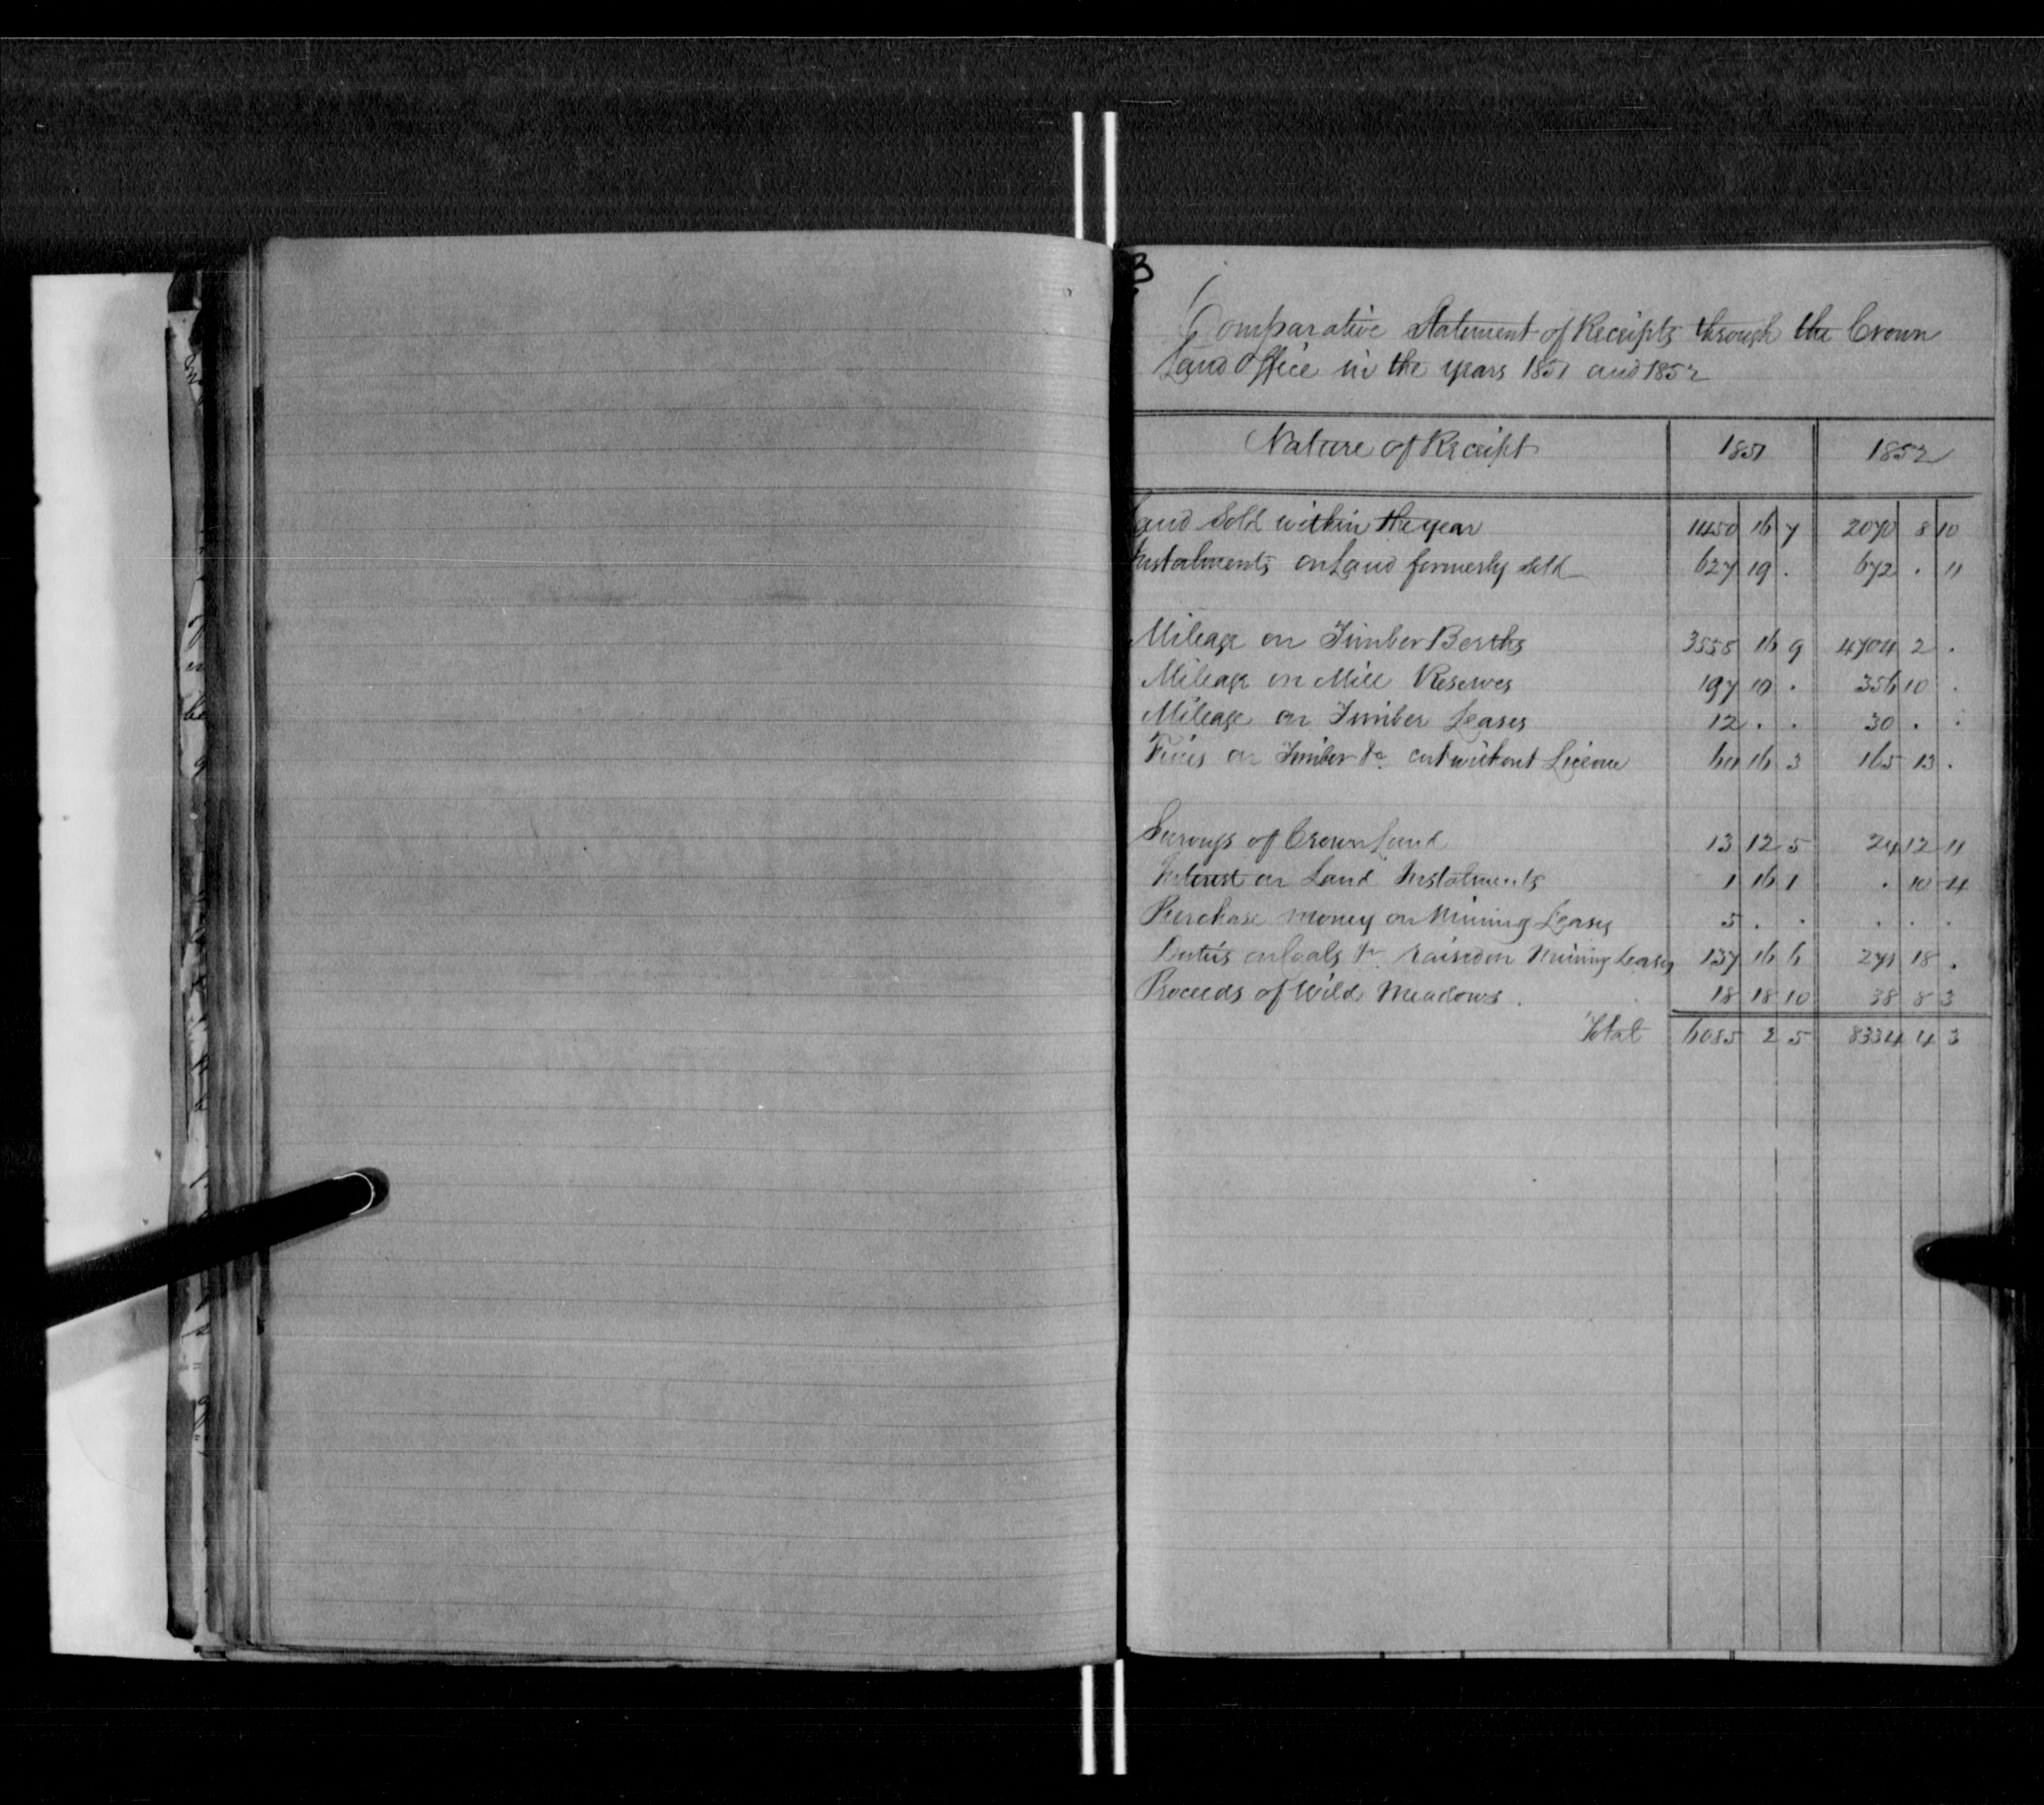 B
Comparative Statement of Receipts through the Crown
Land Office in the years 1851 and 1852
Nature of Receipt 1851 1852
Land Sold within the year 1450 16 7 2070 8 10
Instalments on Land formerly sold 627 19 . 672 . 11
Mileage on Timber Berths 3558 16 9 4704 2 .
Mileage on Mill Reserves 197 10 . 356 10 .
Mileage on Timber Leases 12 . . 30 . .
Fines on Timber &c cut without License 60 16 3 165 13 .
Surveys of Crown Land 13 12 5 24 12 11
Interest on Land Instalments 1 16 1 . 10 4
Purchase money on Mining Leases 5 . . . . .
Duties on Coals &c raised on Mining Leases 137 16 6 271 18 .
Proceeds of Wild Meadows . 18 18 10 38 8 3
Total 6085 2 5 8334 4 3